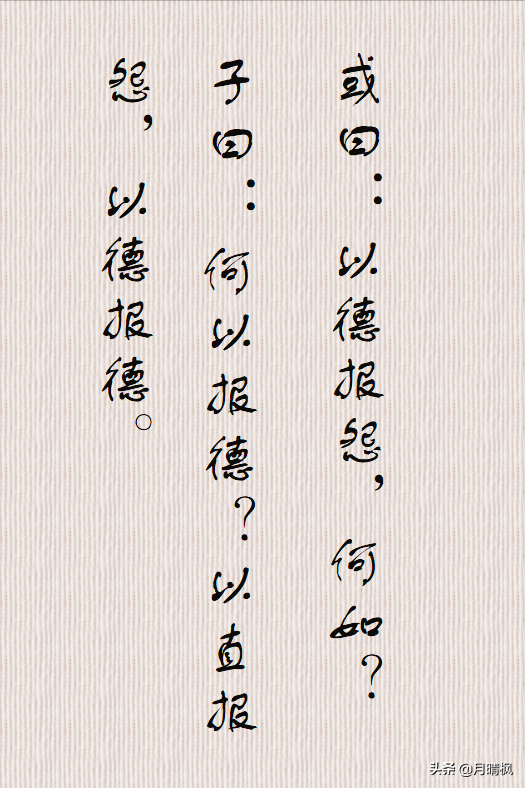 或曰：以德报怨，何如？
子曰：何以报德？以直报
怨，以德报德。
头条 @月晴枫